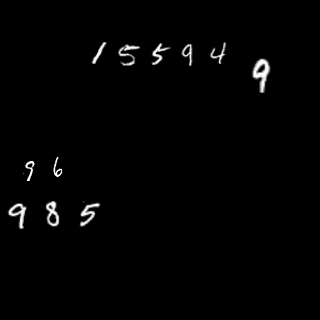 15594
9
96
985